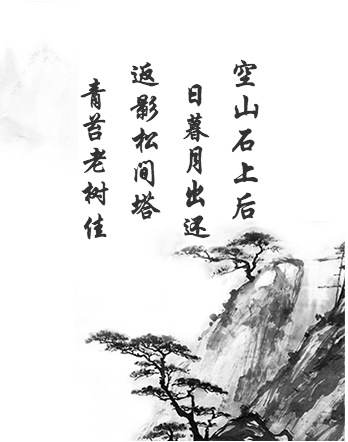 空山石上后
日暮月出还
返影松间塔
青苔老树佳